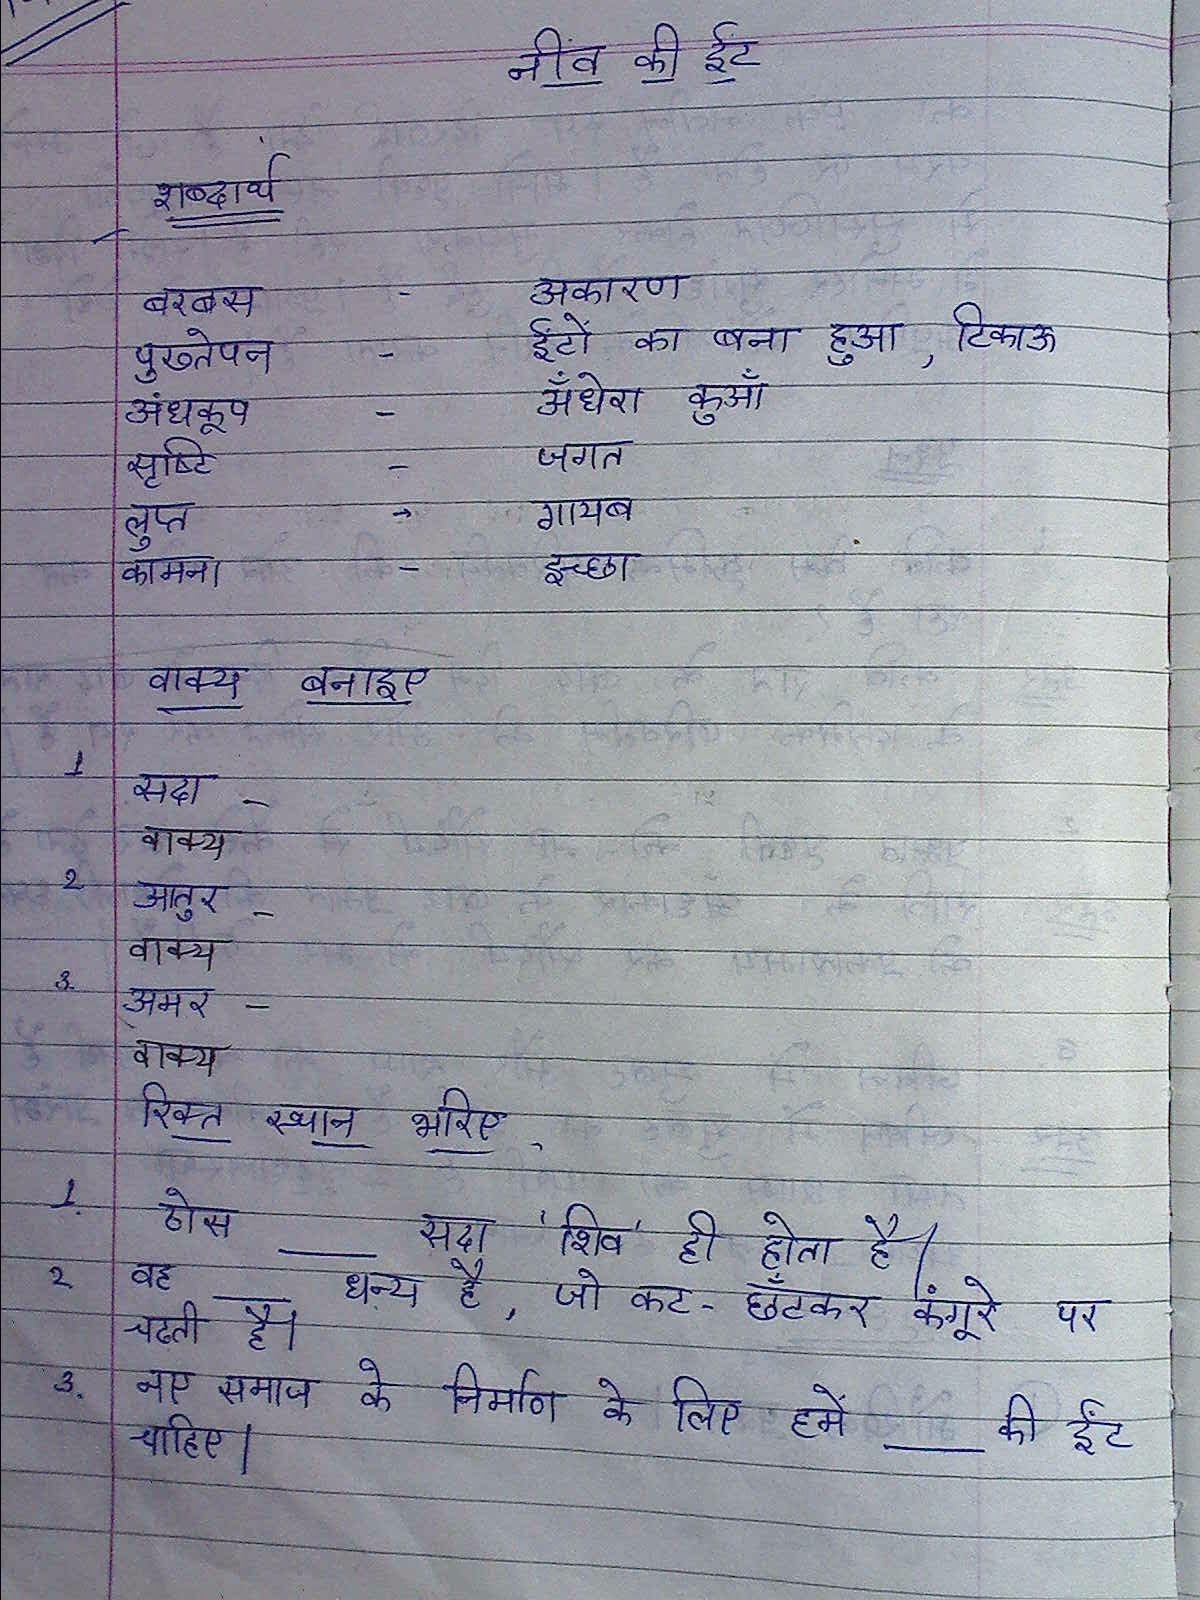 नींव की ईंट
शब्दार्थ
बरबस - अकारण
पुख्तेपन - ईंटों का बना हुआ, टिकाऊ
अंधकूप - अँधेरा कुआँ
सृष्टि - जगत
लुप्त - गायब
कामना - इच्छा
वाक्य बनाइए
1 सदा -
वाक्य
2 आतुर -
वाक्य
3. अमर -
वाक्य
रिक्त स्थान भरिए
1. ठोस ____ सदा 'शिव' ही होता है।
2 वह ____ धन्य है, जो कट-छँटकर कंगूरे पर
चढ़ती है।
3. नए समाज के निर्माण के लिए हमें ____ की ईंट
चाहिए।